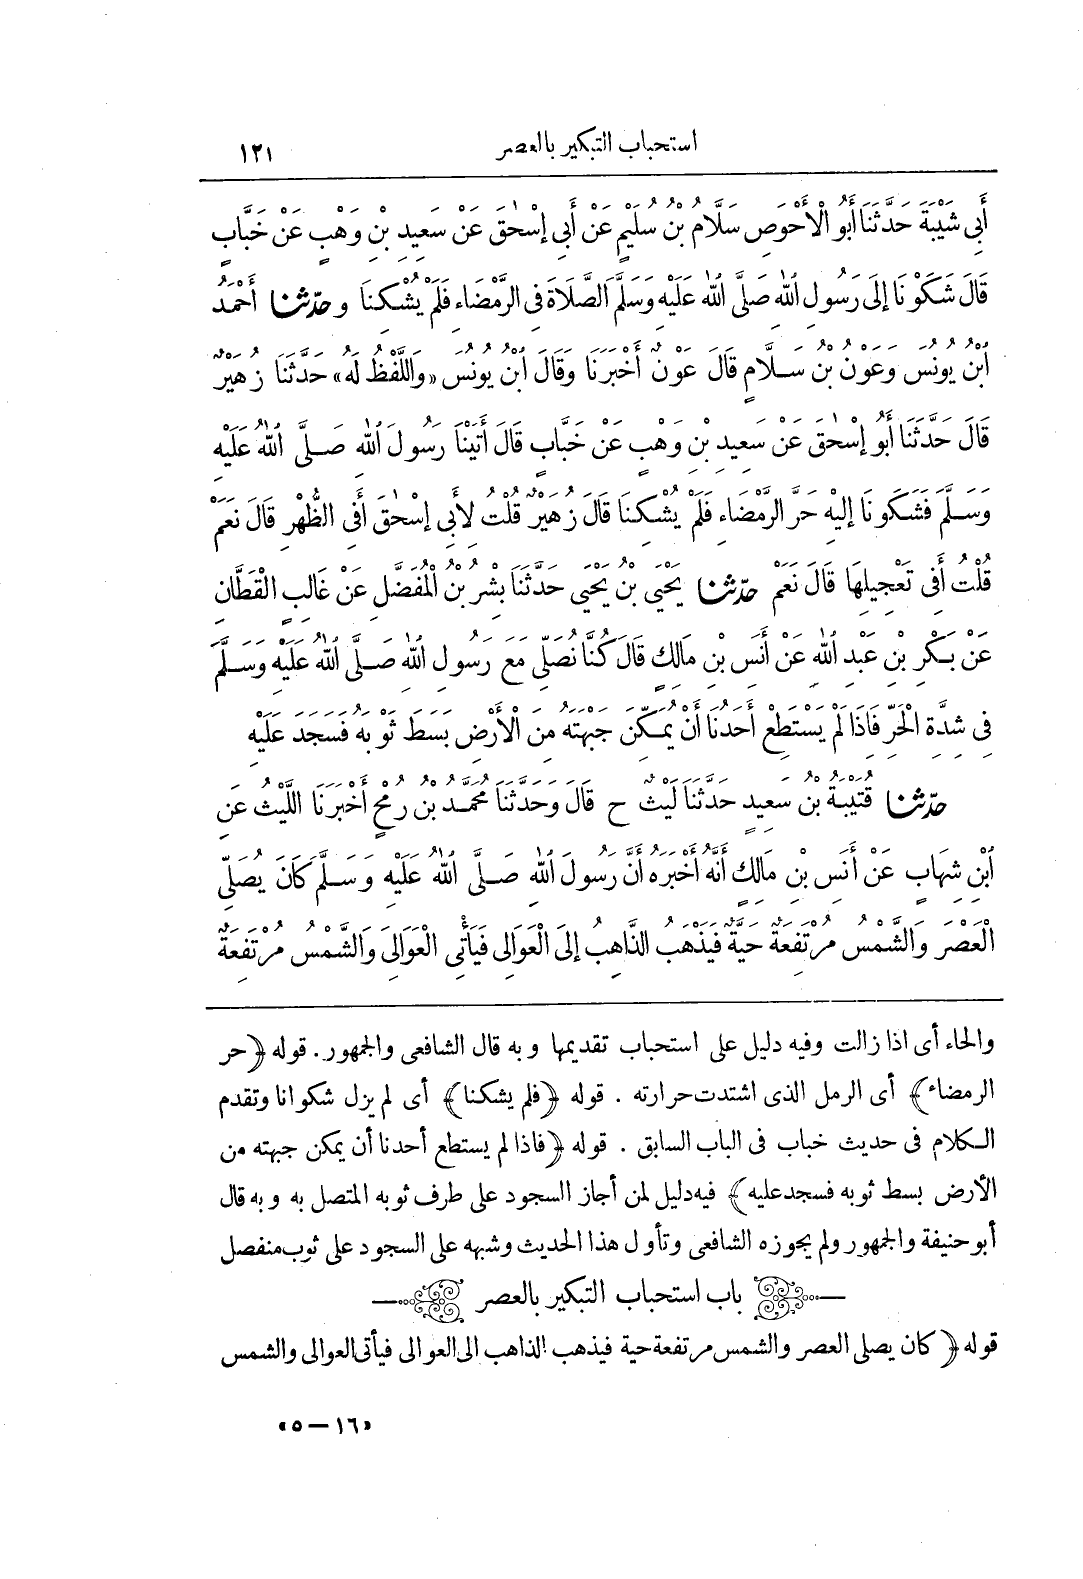 استحباب التبكير بالعصر ١٢١
أَبِي شَيْبَةَ حَدَّثَنَا أَبُو الْأَحْوَصِ سَلَّامُ بْنُ سُلَيْمٍ عَنْ أَبِي إِسْحٰقَ عَنْ سَعِيدِ بْنِ وَهْبٍ عَنْ خَبَّابٍ
قَالَ شَكَوْنَا إِلَى رَسُولِ اللّٰهِ صَلَّى اللّٰهُ عَلَيْهِ وَسَلَّمَ الصَّلَاةَ فِى الرَّمْضَاءِ فَلَمْ يُشْكِنَا و حدّثنا أَحْمَدُ
ابْنُ يُونُسَ وَعَوْنُ بْنُ سَلَّامٍ قَالَ عَوْنٌ أَخْبَرَنَا وَقَالَ ابْنُ يُونُسَ «وَاللَّفْظُ لَهُ» حَدَّثَنَا زُهَيْرٌ
قَالَ حَدَّثَنَا أَبُو إِسْحٰقَ عَنْ سَعِيدِ بْنِ وَهْبٍ عَنْ خَبَّابٍ قَالَ أَتَيْنَا رَسُولَ اللّٰهِ صَلَّى اللّٰهُ عَلَيْهِ
وَسَلَّمَ فَشَكَوْنَا إِلَيْهِ حَرَّ الرَّمْضَاءِ فَلَمْ يُشْكِنَا قَالَ زُهَيْرٌ قُلْتُ لِأَبِي إِسْحٰقَ أَفِى الظُّهْرِ قَالَ نَعَمْ
قُلْتُ أَفِى تَعْجِيلِهَا قَالَ نَعَمْ حدّثنا يَحْيَى بْنُ يَحْيَى حَدَّثَنَا بِشْرُ بْنُ الْمُفَضَّلِ عَنْ غَالِبٍ الْقَطَّانِ
عَنْ بَكْرِ بْنِ عَبْدِ اللّٰهِ عَنْ أَنَسِ بْنِ مَالِكٍ قَالَ كُنَّا نُصَلِّى مَعَ رَسُولِ اللّٰهِ صَلَّى اللّٰهُ عَلَيْهِ وَسَلَّمَ
فِى شِدَّةِ الْحَرِّ فَإِذَا لَمْ يَسْتَطِعْ أَحَدُنَا أَنْ يُمَكِّنَ جَبْهَتَهُ مِنَ الْأَرْضِ بَسَطَ ثَوْبَهُ فَسَجَدَ عَلَيْهِ
حدّثنا قُتَيْبَةُ بْنُ سَعِيدٍ حَدَّثَنَا لَيْثٌ ح قَالَ وَحَدَّثَنَا مُحَمَّدُ بْنُ رُمْحٍ أَخْبَرَنَا اللَّيْثُ عَنِ
ابْنِ شِهَابٍ عَنْ أَنَسِ بْنِ مَالِكٍ أَنَّهُ أَخْبَرَهُ أَنَّ رَسُولَ اللّٰهِ صَلَّى اللّٰهُ عَلَيْهِ وَسَلَّمَ كَانَ يُصَلِّى
الْعَصْرَ وَالشَّمْسُ مُرْتَفِعَةٌ حَيَّةٌ فَيَذْهَبُ الذَّاهِبُ إِلَى الْعَوَالِى فَيَأْتِى الْعَوَالِىَ وَالشَّمْسُ مُرْتَفِعَةٌ
والحاء أى اذا زالت وفيه دليل على استحباب تقديمها وبه قال الشافعى والجمهور. قوله ﴿حر
الرمضاء﴾ أى الرمل الذى اشتدت حرارته . قوله ﴿فلم يشكنا﴾ أى لم يزل شكوانا وتقدم
الكلام فى حديث خباب فى الباب السابق . قوله ﴿فاذا لم يستطع أحدنا أن يمكن جبهته من
الأرض بسط ثوبه فسجد عليه﴾ فيه دليل لمن أجاز السجود على طرف ثوبه المتصل به وبه قال
أبو حنيفة والجمهور ولم يجوزه الشافعى وتأول هذا الحديث وشبهه على السجود على ثوب منفصل
باب استحباب التبكير بالعصر
قوله ﴿كان يصلى العصر والشمس مرتفعة حية فيذهب الذاهب الى العوالى فيأتى العوالى والشمس
«١٦ — ٥»